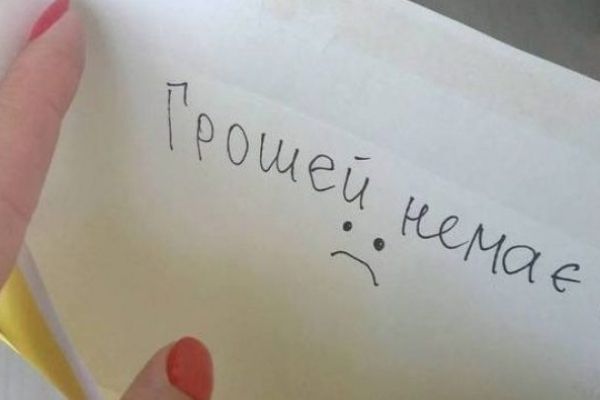 Грошей немає